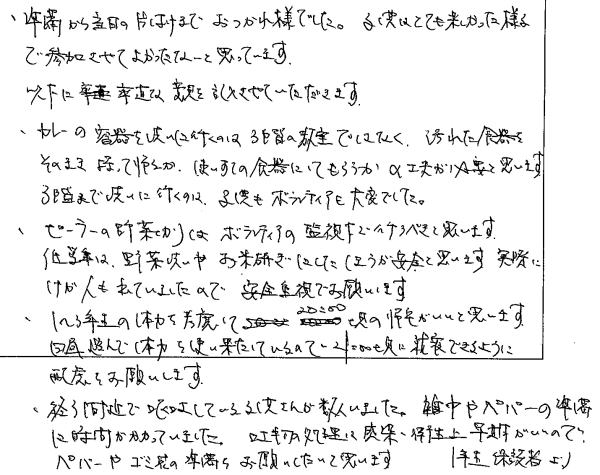 ・準備から当日の片付けまで おつかれ様でした。子供はとても楽しかった様子
で参加させてよかったなーと思っています。
以下に 率直な 意見を 記入させていただきます。
・カレーの 容器を洗いに行くのは 3階の教室ではなく、汚れた食器を
そのまま 持って帰るか、使いすての食器にしてもらうか の工夫が必要と思います。
3階まで洗いに行くのは、子供も ボランティアも 大変でした。
・ピーラーの野菜切りは ボランティアの 監視下で行うべきと思います。
低学年は、野菜洗いや お米研ぎにした ほうが安全と思います 実際に
けが人も出ていましたので 安全重視でお願いします
・1〜3年生の体力を考慮して 20:00頃の帰宅がいいと思います。
遊んで体力を使い果たしているので 21:00頃に就寝できるように
配慮をお願いします。
・終了間近で 嘔吐している子供さんが数人いました。雑巾やペーパーの準備
に時間がかかっていました。嘔吐物処理は感染・衛生上 早期がいいので、
ペーパーや ゴミ袋の準備を お願いしたいと思います 1年生 保護者より